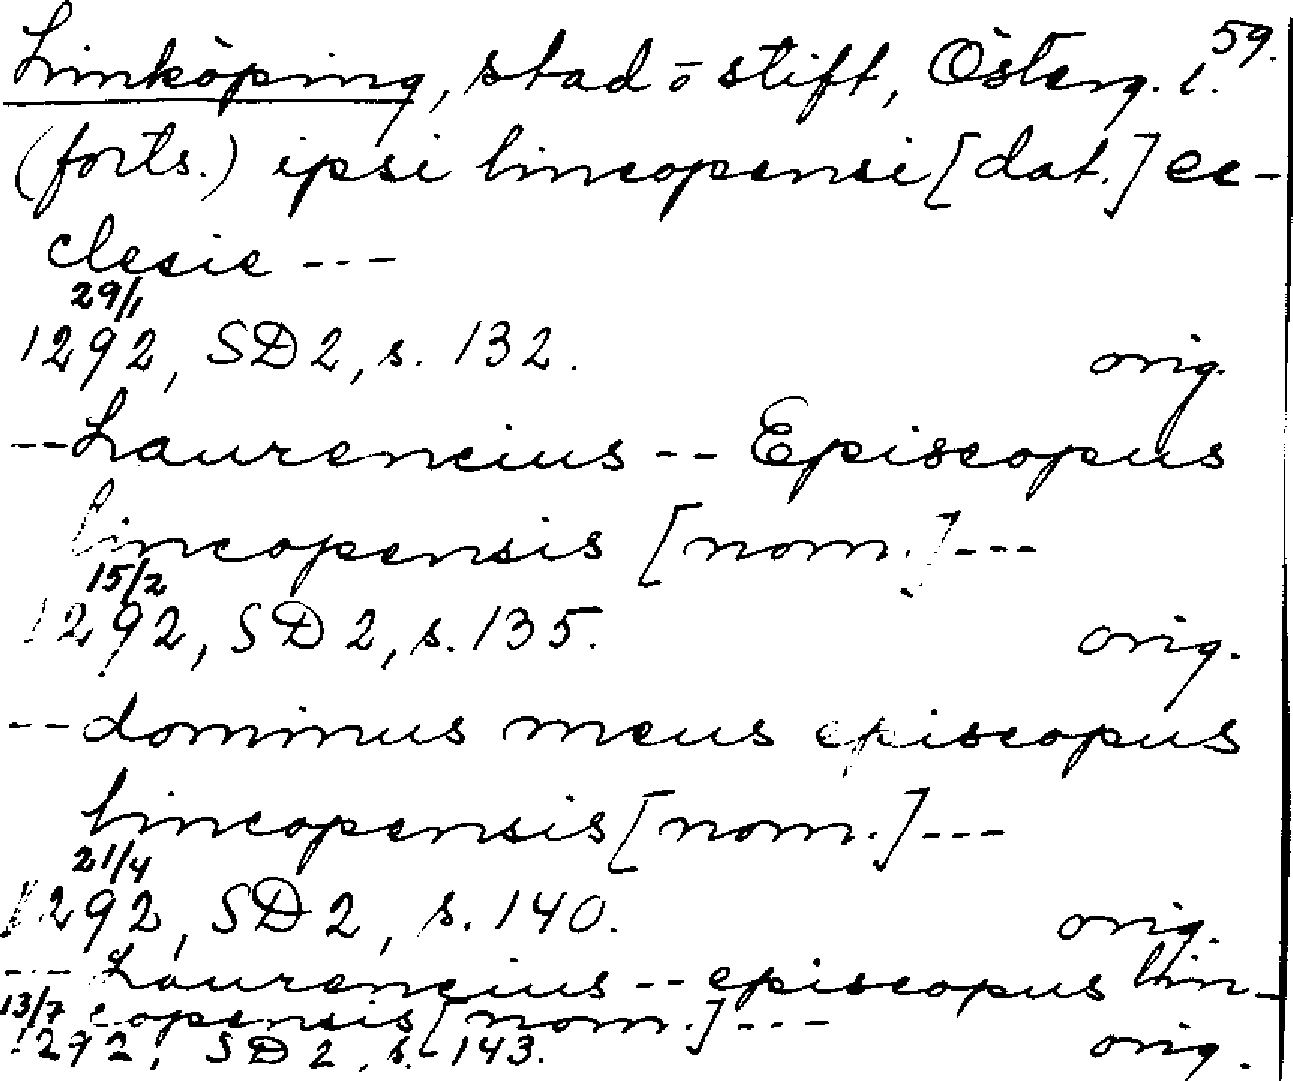 59.
Linköping, stad o stift, Österg. l.
(forts.) ipsi lincopensi [dat.] ec-
clesie ---
29/1
1292, SD 2, s. 132. orig.
-- Laurencius -- Episcopus
lincopensis [nom.] ---
15/2
1292, SD 2, s. 135. orig.
-- dominus meus episcopus
lincopensis [nom.] ---
21/4
1292, SD 2, s. 140. orig.
--- Laurencius -- episcopus lin-
copensis [nom.] ---
13/7
1292, SD 2, s. 143. orig.